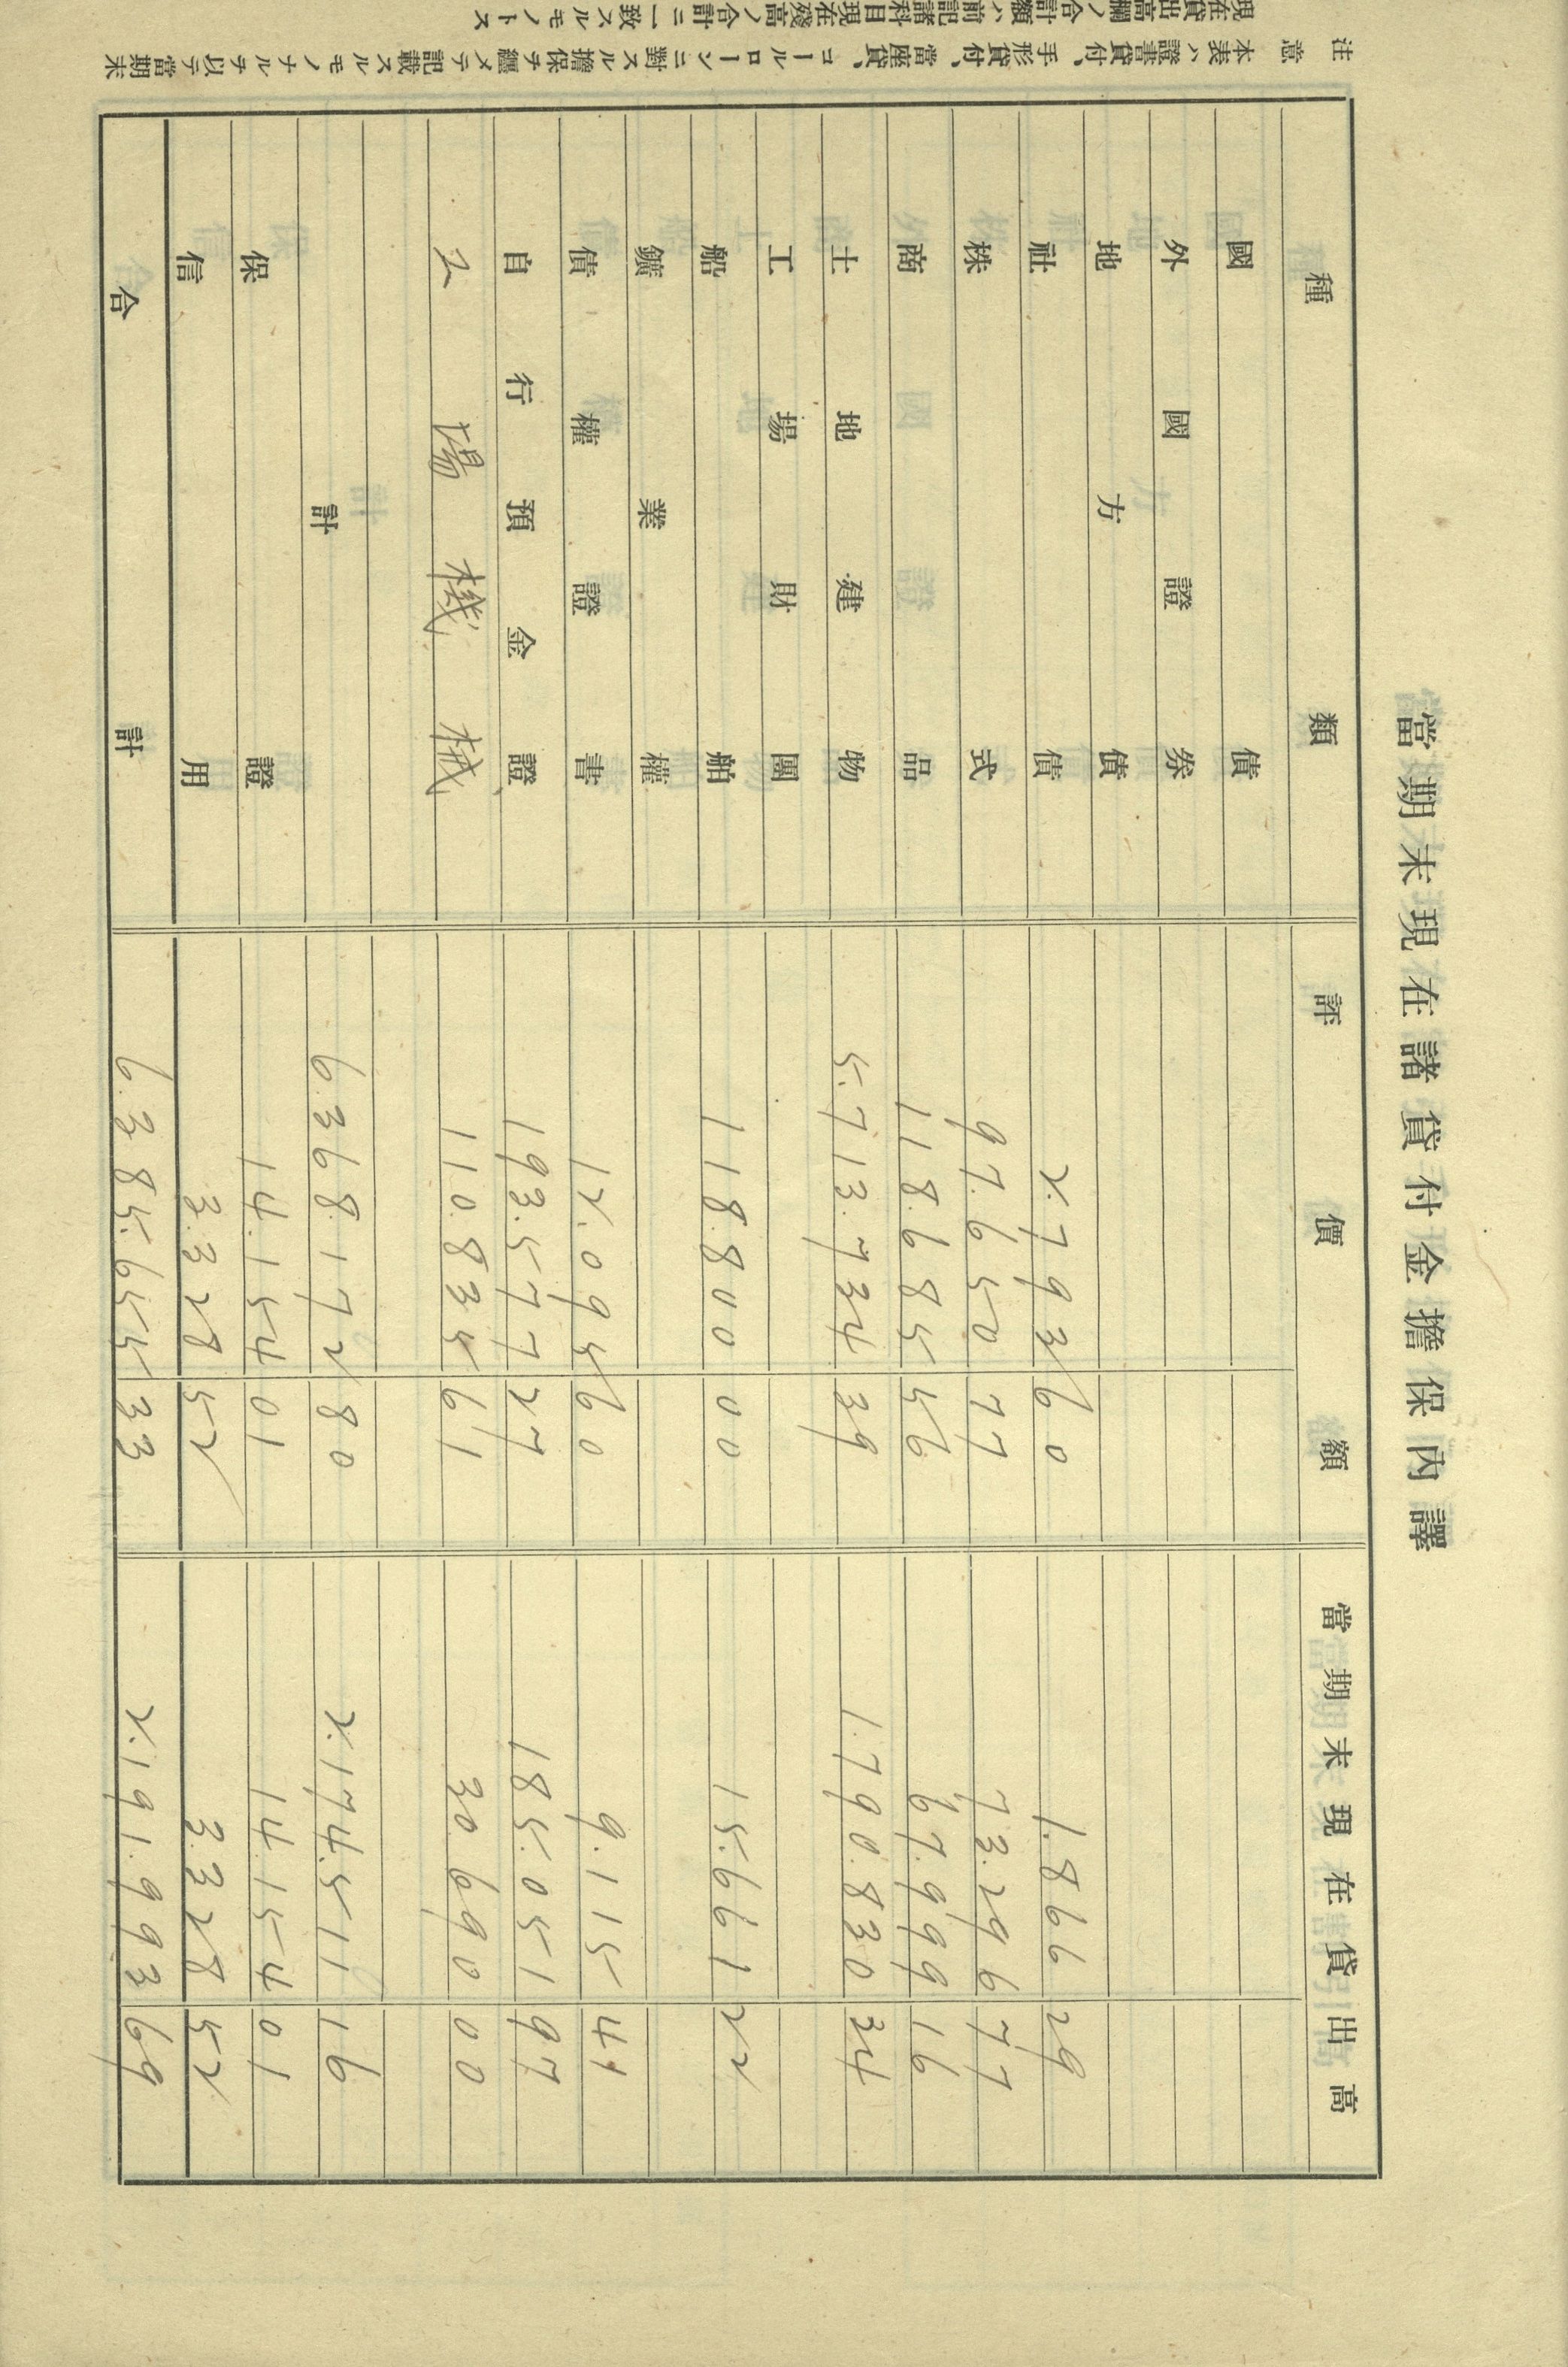 當期末現在諸貸付金擔保內譯
種類 評價額 當期末現在貸出高
國債
外國證券
地方債
社債 2.793 60 1.866 29
株式 97.650 77 73.296 77
商品 118.685 56 67.999 16
土地建物 5.713.734 39 1.790.830 34
工場財團
船舶 118.800 00 15.661 22
鑛業權
債權證書 12.095 60 9.115 41
自行預金證 193.577 27 185.051 97
工場機械 110.835 61 30.690 00
計 6.368.172 80 2.174.511 16
保證 14.154 01 14.154 01
信用 3.328 52 3.328 52
合計 6.385.655 33 2.191.993 69
注意 本表ハ證書貸付、手形貸付、當座貸、コールローンニ對スル擔保ヲ纒メテ記載スルモノナルヲ以テ當期末
現在貸出高欄ノ合計額ハ前記諸科目現在殘高ノ合計ニ一致スルモノトス